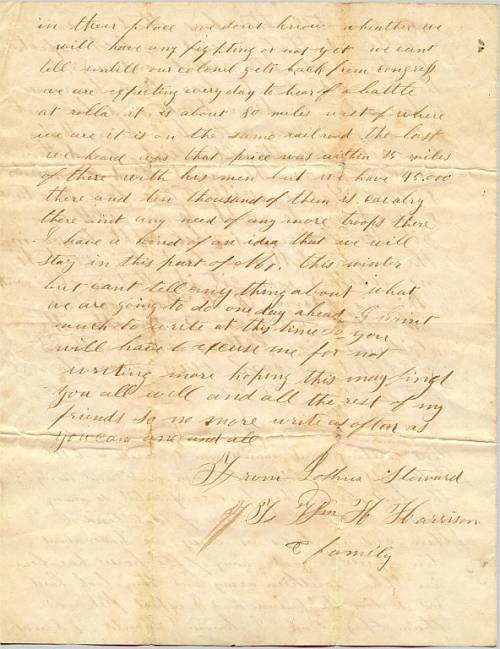 in their place we dont know wheather we
will have any fighting or not yet we cant
till untill our colonel gets back from congress
we are expecting every day to hear of a battle
at rolla it is about 80 miles west of where
we are it is on the same railroad the last
we heard was that price was within 25 miles
of there with his men but we have 45.000
there and ten thousand of them is cavalry
there aint any need of any more troops there
I have a kind of an idea that we will
stay in this part of Mo. this winter
but cant tell any thing about what
we are going to do one day ahead I
much to write at this time so you
will have to excuse me for not
writing more hoping this may find
you all well and all the rest of my
friends so no more write as often as
you can one and all
From Joshua Steward
Wm H Harrison
& family